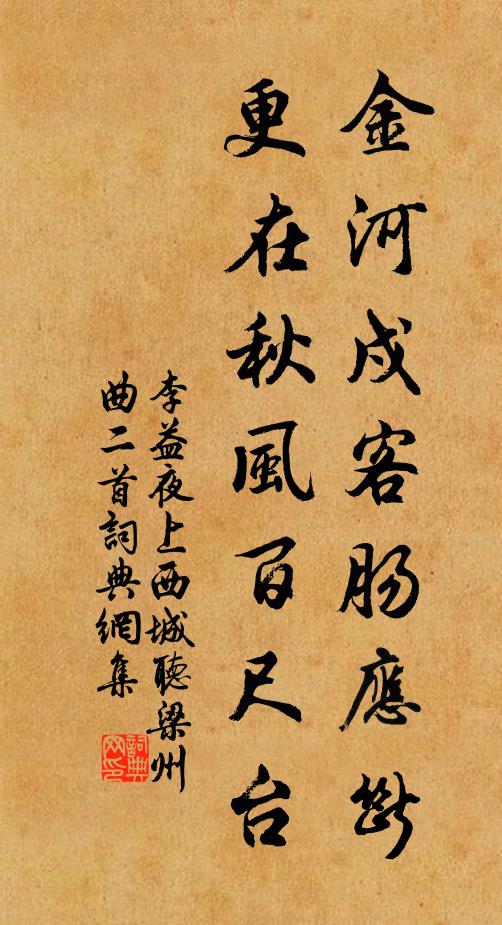 金河戍客腸應斷
更在秋風百尺台
李益夜上西城聽梁州
曲二首詞典網集
詞典
网印